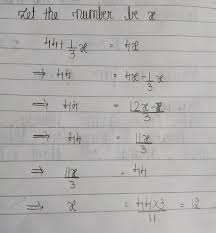 Let the number be x
44+1/3 x = 4x
⇒ 44 = 4x-1/3 x
⇒ 44 = 12x-x/3
⇒ 44 = 11x/3
⇒ 11x/3 = 44
⇒ x = 44×3/11 = 12